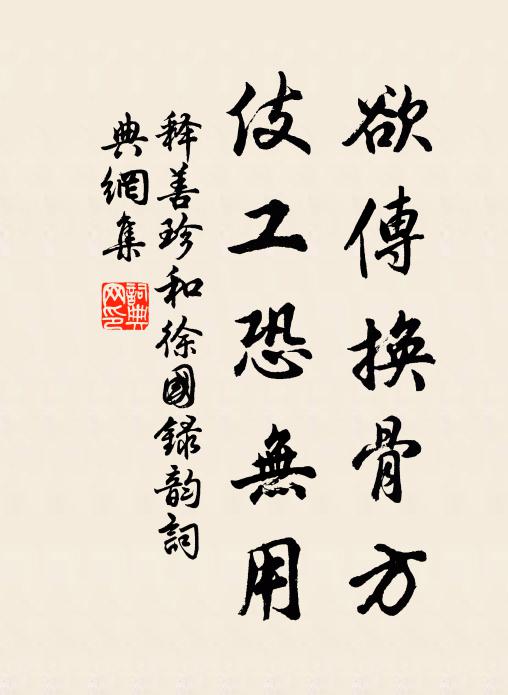 欲傳換骨方
伎工恐無用
释善珍和徐國録韵詞
典網集
詞典网印